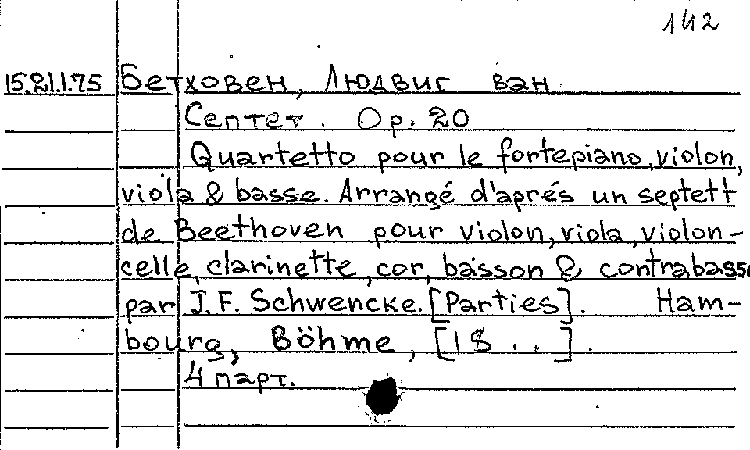 142
15.21.1.75 Бетховен, Людвиг ван
Септет. Op. 20
Quartetto pour le fortepiano, violon,
viola & basse. Arrangé d'aprés un septett
de Beethoven pour violon, viola, violon-
celle, clarinette, cor, basson & contrabasse
par J. F. Schwencke. [Parties]. Ham-
bourg, Böhme, [18 . .].
4 парт.